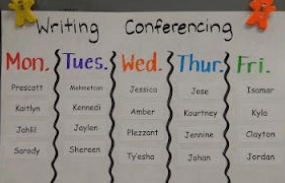 Writing Conferencing
Mon. Tues. Wed. Thur. Fri.
Prescott Mehmetcan Jessica Jose Isamar
Kaitlyn Kennedi Amber Kourtney Kyla
Jahlil Jaylen Plezzant Jennine Clayton
Sarady Shereen Ty'esha Johan Jordan